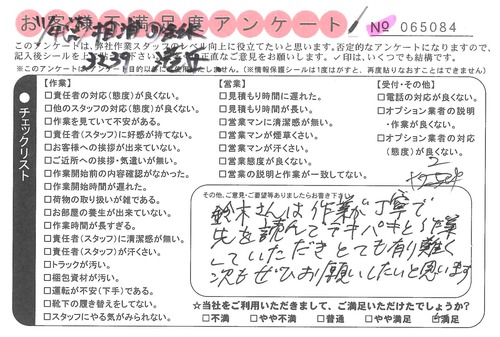 お客様不満足度アンケート
№ 065084
このアンケートは、弊社作業スタッフのレベル向上に役立てたいと思います。否定的なアンケートになりますので、
記入後シールを
正直なご意見をお願いします。✓印は、いくつでも結構です。
※このアンケートは
(※情報保護シールは1度はがすと、再度貼りなおすことはできません)
●チェックリスト
【作業】
□責任者の対応(態度)が良くない。
□他のスタッフの対応(態度)が良くない。
□作業を見ていて不安がある。
□責任者(スタッフ)に好感が持てない。
□お客様への挨拶が出来ていない。
□ご近所への挨拶・気遣いが無い。
□作業開始前の内容確認がなかった。
□作業開始時間が遅れた。
□荷物の取り扱いが雑である。
□お部屋の養生が出来ていない。
□作業時間が長すぎる。
□責任者(スタッフ)に清潔感が無い。
□責任者(スタッフ)が汗くさい。
□トラックが汚い。
□梱包資材が汚い。
□運転が不安(下手)である。
□靴下の履き替えをしてない。
□スタッフにやる気がみられない。
【営業】
□見積もり時間に遅れた。
□見積もり時間が長い。
□営業マンに清潔感が無い。
□営業マンが煙草くさい。
□営業マンが汗くさい。
□営業態度が良くない。
□営業の説明と作業が一致してない。
【受付・その他】
□電話の対応が良くない。
□オプション業者の説明
・作業が良くない。
□オプション業者の対応
(態度)が良くない。
その他、ご意見・ご要望等ありましたらお書き下さい
鈴木さんは作業が丁寧で
先を読んでテキパキと作業
していただきとても有り難く
次もぜひお願いしたいと思います
☆当社をご利用いただきまして、ご満足いただけたでしょうか?
□不満 □やや不満 □普通 □やや満足 ☑満足